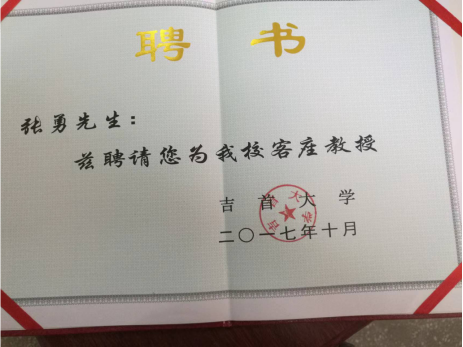 聘 书
张勇先生：
兹聘请您为我校客座教授
吉首大学
二〇一七年十月